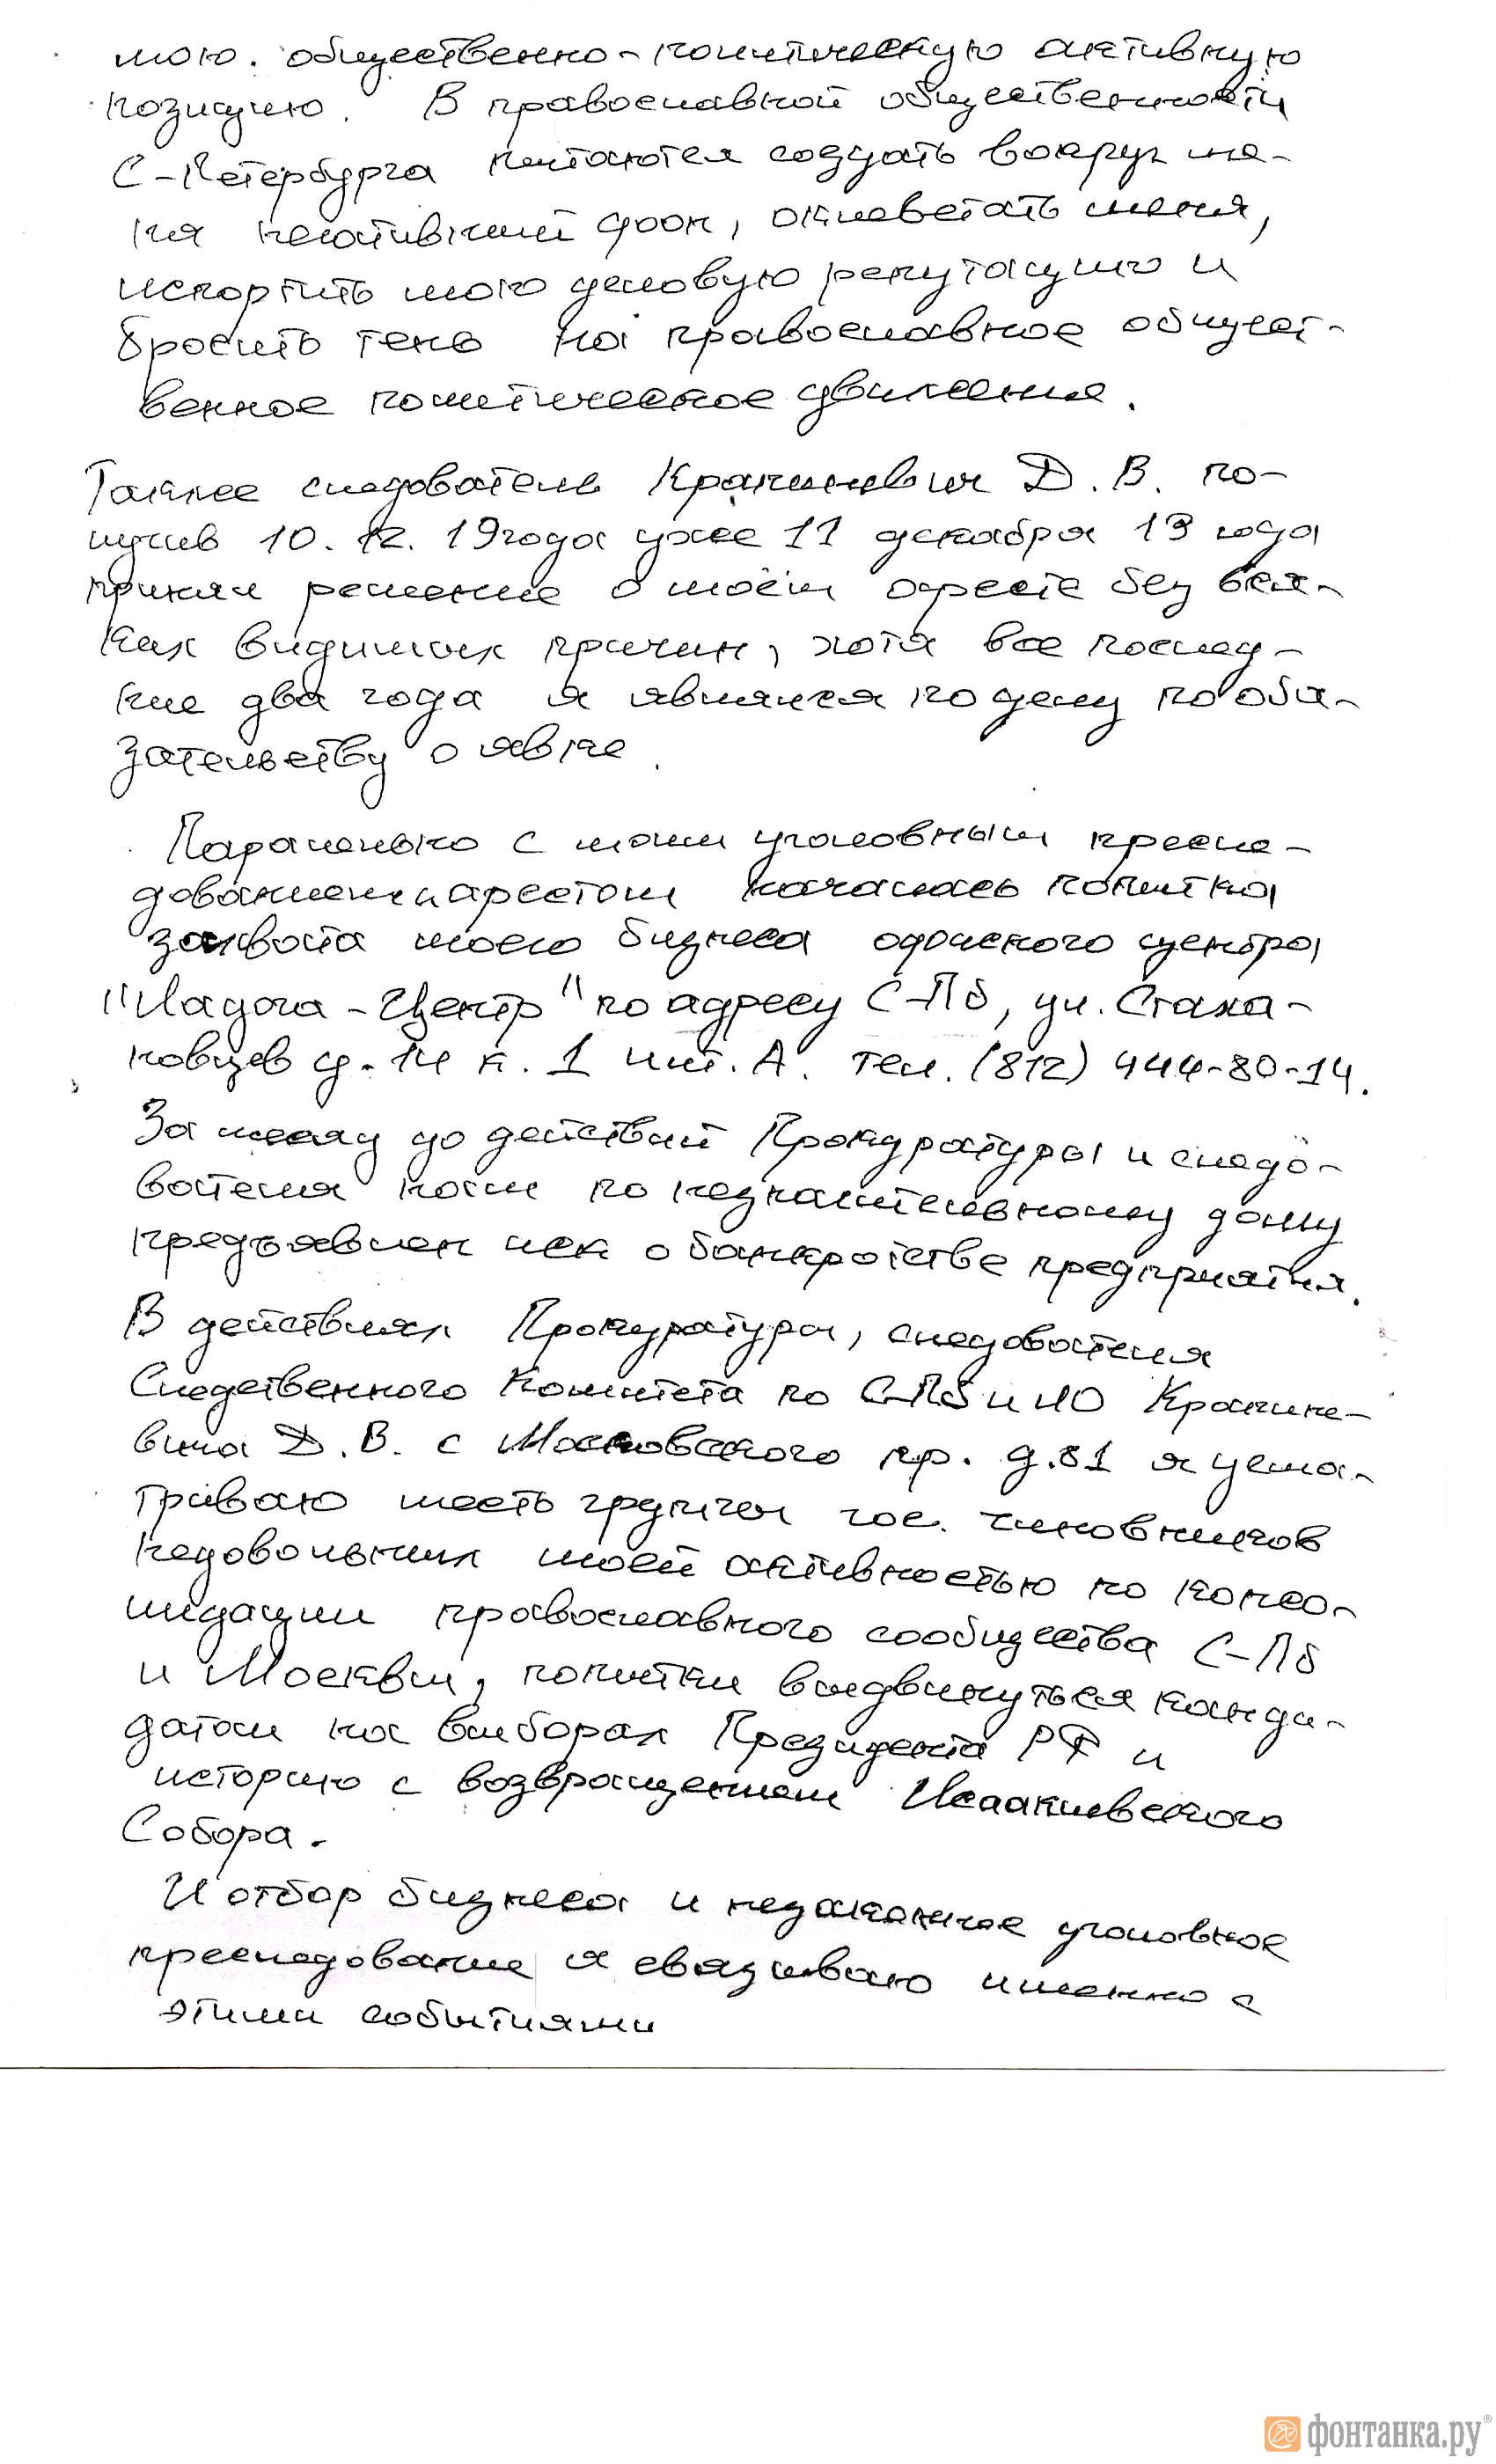 мою общественно-политическую активную
позицию. В православной общественности
С-Петербурга пытаются создать вокруг ме-
ня негативный фон, оклеветать меня,
испортить мою деловую репутацию и
бросить тень на православное общест-
венное политическое движение.
Также следователь Крапиневич Д.В. по-
лучив 10.12.19 года уже 11 декабря 19 года
принял решение о моём аресте без вся-
ких видимых причин, хотя все послед-
ние два года я являлся по делу по обя-
зательству о явке.
Паралельно с моим уголовным пресле-
дованием и арестом началась попытка
захвата моего бизнеса офисного центра
"Ладога-Центр" по адресу С-Пб, ул. Стаха-
новцев д. 14 к. 1 лит. А. тел. (812) 444-80-14.
За месяц до действий Прокуратуры и следо-
вателя нам по незначительному долгу
предъявлен иск о банкротстве предприятия.
В действиях Прокуратуры, следователя
Следственного Комитета по С-Пб и ЛО Крапине-
вича Д.В. с Московского пр. д.81 я усма-
триваю месть группы гос. чиновников
недовольных моей активностью по консо-
лидации православного сообщества С-Пб
и Москвы, попытки выдвинуться канди-
датом на выборах Президента РФ и
историю с возвращением Исаакиевского
Собора.
И отбор бизнеса и незаконное уголовное
преследование я связываю именно с
этими событиями
фонтанка.ру®